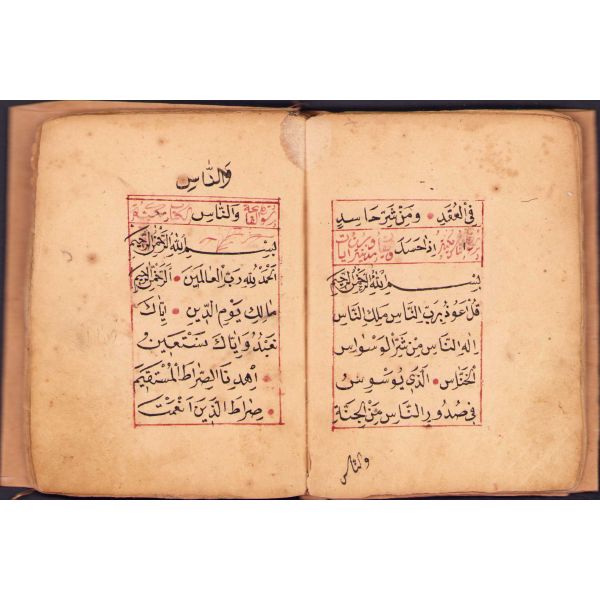 فِى الْعُقَدِ وَمِنْ شَرِّ حَاسِدٍ
اِذَا حَسَدَ
بِسْمِ اللّٰهِ الرَّحْمٰنِ الرَّحِيمِ
قُلْ اَعُوذُ بِرَبِّ النَّاسِ مَلِكِ النَّاسِ
اِلٰهِ النَّاسِ مِنْ شَرِّ الْوَسْوَاسِ
الْخَنَّاسِ الَّذِى يُوَسْوِسُ
فِى صُدُورِ النَّاسِ مِنَ الْجِنَّةِ
والناس
وَالنَّاسِ
سورة الفاتحة وَالنَّاسِ
بِسْمِ اللّٰهِ الرَّحْمٰنِ الرَّحِيمِ
اَلْحَمْدُ لِلّٰهِ رَبِّ الْعَالَمِينَ اَلرَّحْمٰنِ الرَّحِيمِ
مَالِكِ يَوْمِ الدِّينِ اِيَّاكَ
نَعْبُدُ وَاِيَّاكَ نَسْتَعِينُ
اِهْدِنَا الصِّرَاطَ الْمُسْتَقِيمَ
صِرَاطَ الَّذِينَ اَنْعَمْتَ